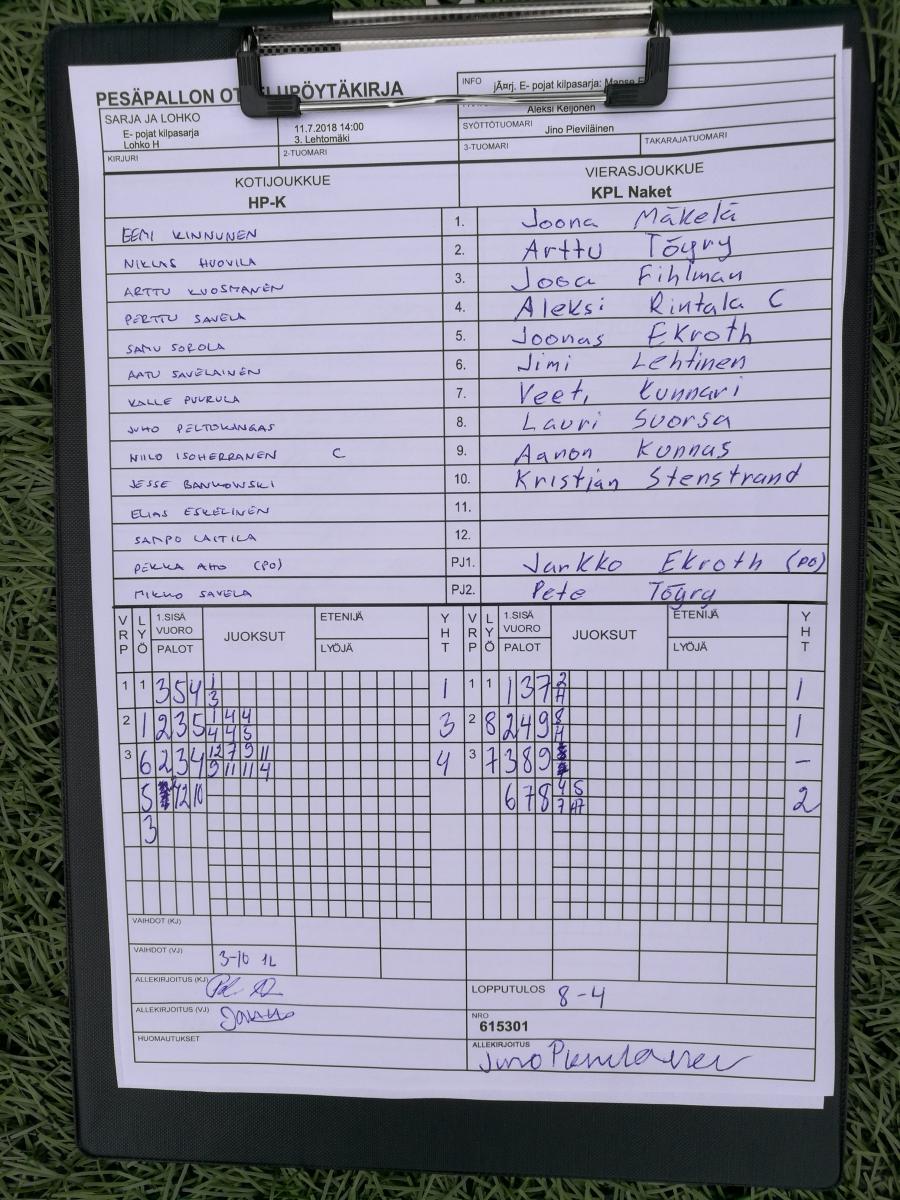 PESÄPALLON OT ELUPÖYTÄKIRJA
INFO jÄ¤rj. E- pojat kilpasarja: Manse
SARJA JA LOHKO
E- pojat kilpasarja
Lohko H
11.7.2018 14:00
3. Lehtomäki
Aleksi Keijonen
SYÖTTÖTUOMARI Jino Pieviläinen
KIRJURI 2-TUOMARI 3-TUOMARI TAKARAJATUOMARI
KOTIJOUKKUE VIERASJOUKKUE
HP-K KPL Naket
EEMI KINNUNEN 1. Joona Mäkelä
NIKLAS HUOVILA 2. Arttu Tögry
ARTTU KUOSMANEN 3. Josa Fihlman
PERTTU SAVELA 4. Aleksi Rintala C
SAMU SOROLA 5. Joonas Ekroth
AATU SAVELAINEN 6. Jimi Lehtinen
KALLE PUURULA 7. Veeti Kunnari
JUHO PELTOKANGAS 8. Lauri Suorsa
NIILO ISOHERRANEN C 9. Aaron Kunnas
JESSE BANKOWSKI 10. Kristjan Stenstrand
ELIAS ESKELINEN 11.
SAMPO LAITILA 12.
PEKKA AHO (PO) PJ1. Jarkko Ekroth (PO)
MIKKO SAVELA PJ2. Pete Tögry
VRP LYÖ 1.SISÄ VUORO PALOT JUOKSUT ETENIJÄ LYÖJÄ YHT VRP LYÖ 1.SISÄ VUORO PALOT JUOKSUT ETENIJÄ LYÖJÄ YHT
1 1 3 5 4 1 1 1 1 1 3 7 2 1
3 4
2 1 2 3 5 1 4 4 3 2 8 2 4 9 8 1
4 4 5 4
3 6 2 3 4 12 7 9 11 4 3 7 3 8 9 -
9 11 11 4
5 12 10 6 7 8 4 5 2
3
VAIHDOT (KJ)
VAIHDOT (VJ) 3-10 1L
ALLEKIRJOITUS (KJ)
LOPPUTULOS 8-4
ALLEKIRJOITUS (VJ)
NRO
615301
HUOMAUTUKSET
ALLEKIRJOITUS
Jino Pieviläinen